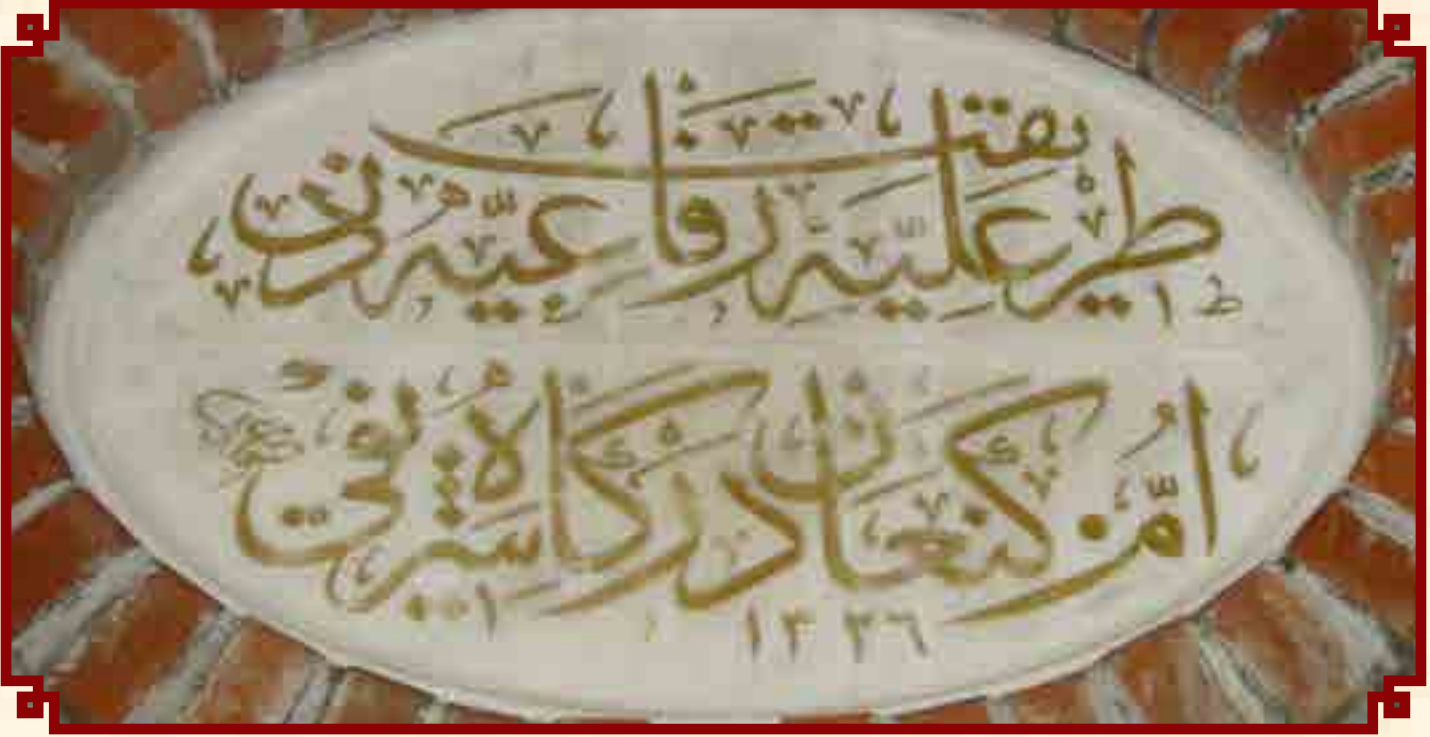 طريقت عليّه رفاعيّه دن
امّ كنعان دركاه شريفى
١٣٢٦